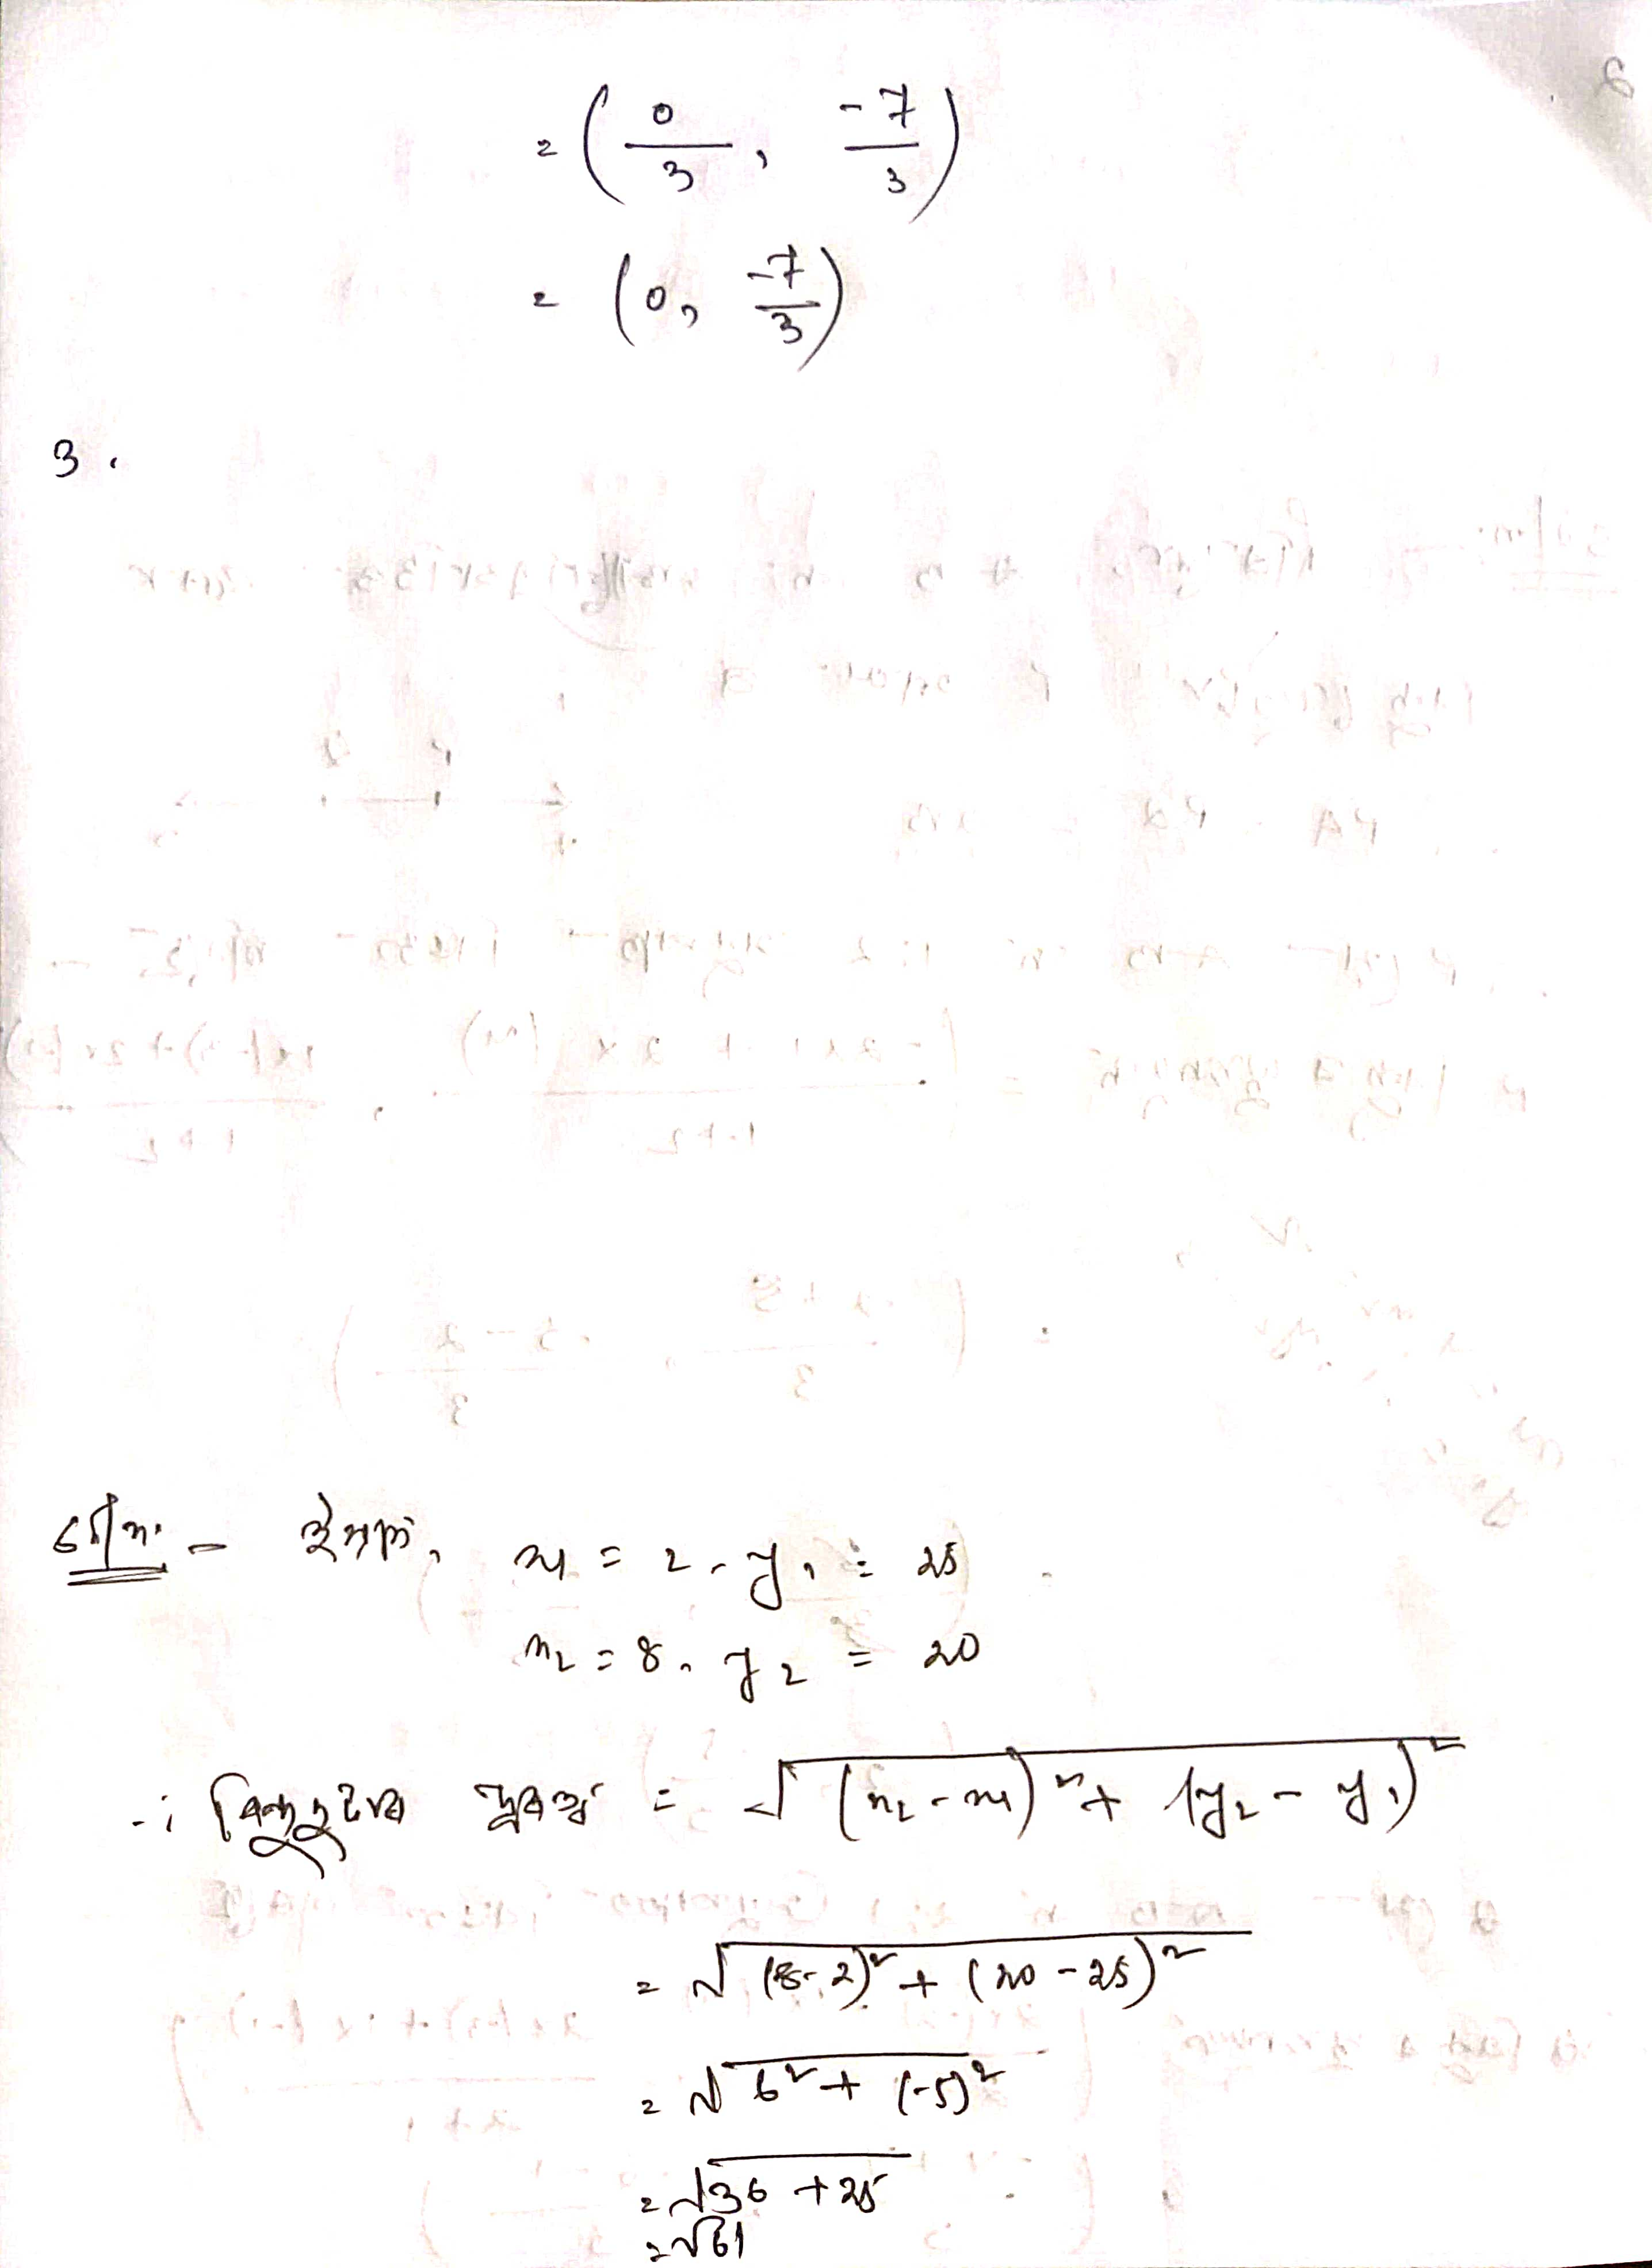 = (0/3, -7/3)
= (0, -7/3)
3.
Soln. - ইয়াত, x₁ = 2, y₁ = 25
x₂ = 8, y₂ = 20
∴ বিন্দুদুটাৰ দূৰত্ব = √((x₂ - x₁)² + (y₂ - y₁)²)
= √((8-2)² + (20-25)²)
= √(6² + (-5)²)
= √(36 + 25)
= √61